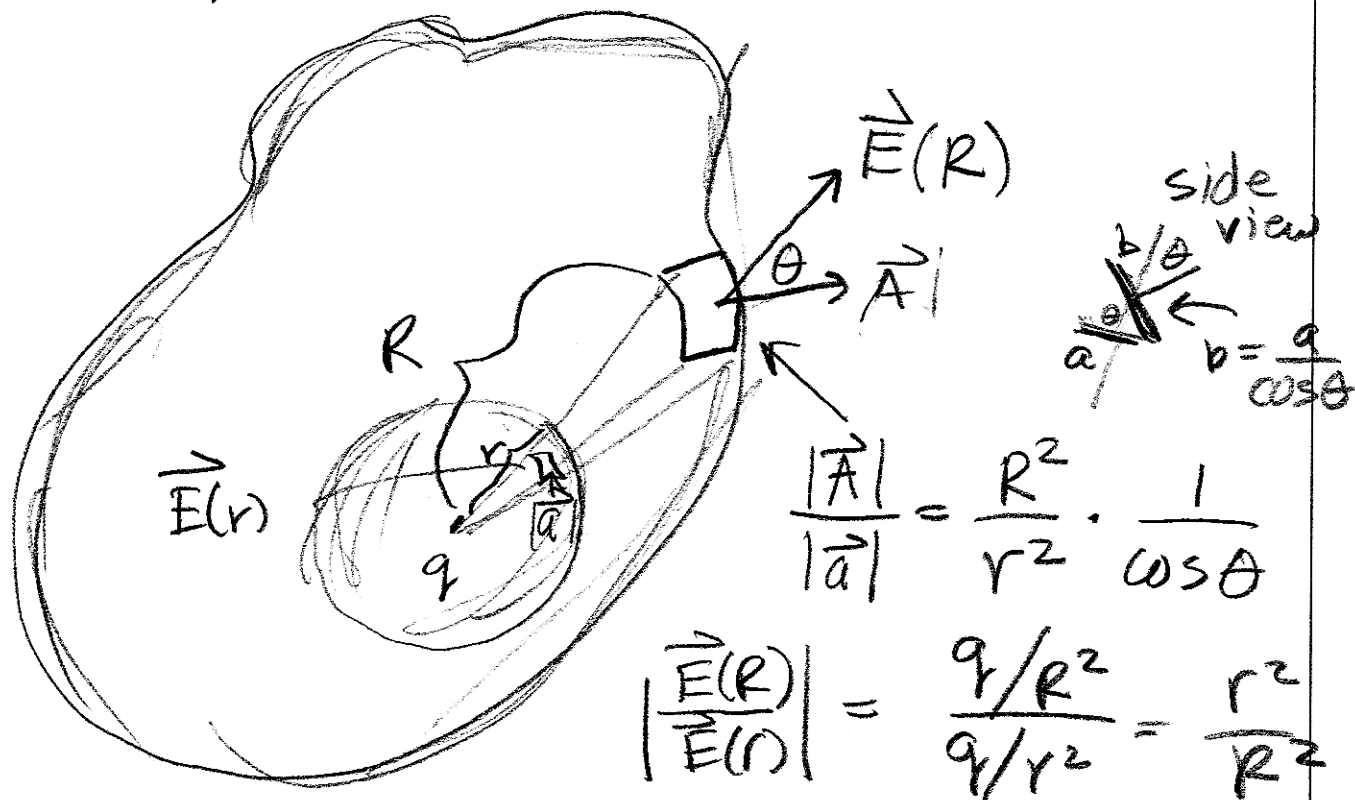 E⃗(R)
side
view
θ
A⃗
b
θ
R
θ
a
b = a/cosθ
r
E⃗(r)
a⃗
q
|A⃗|/|a⃗| = R²/r² · 1/cosθ
|E⃗(R)/E⃗(r)| = q/R²/q/r² = r²/R²